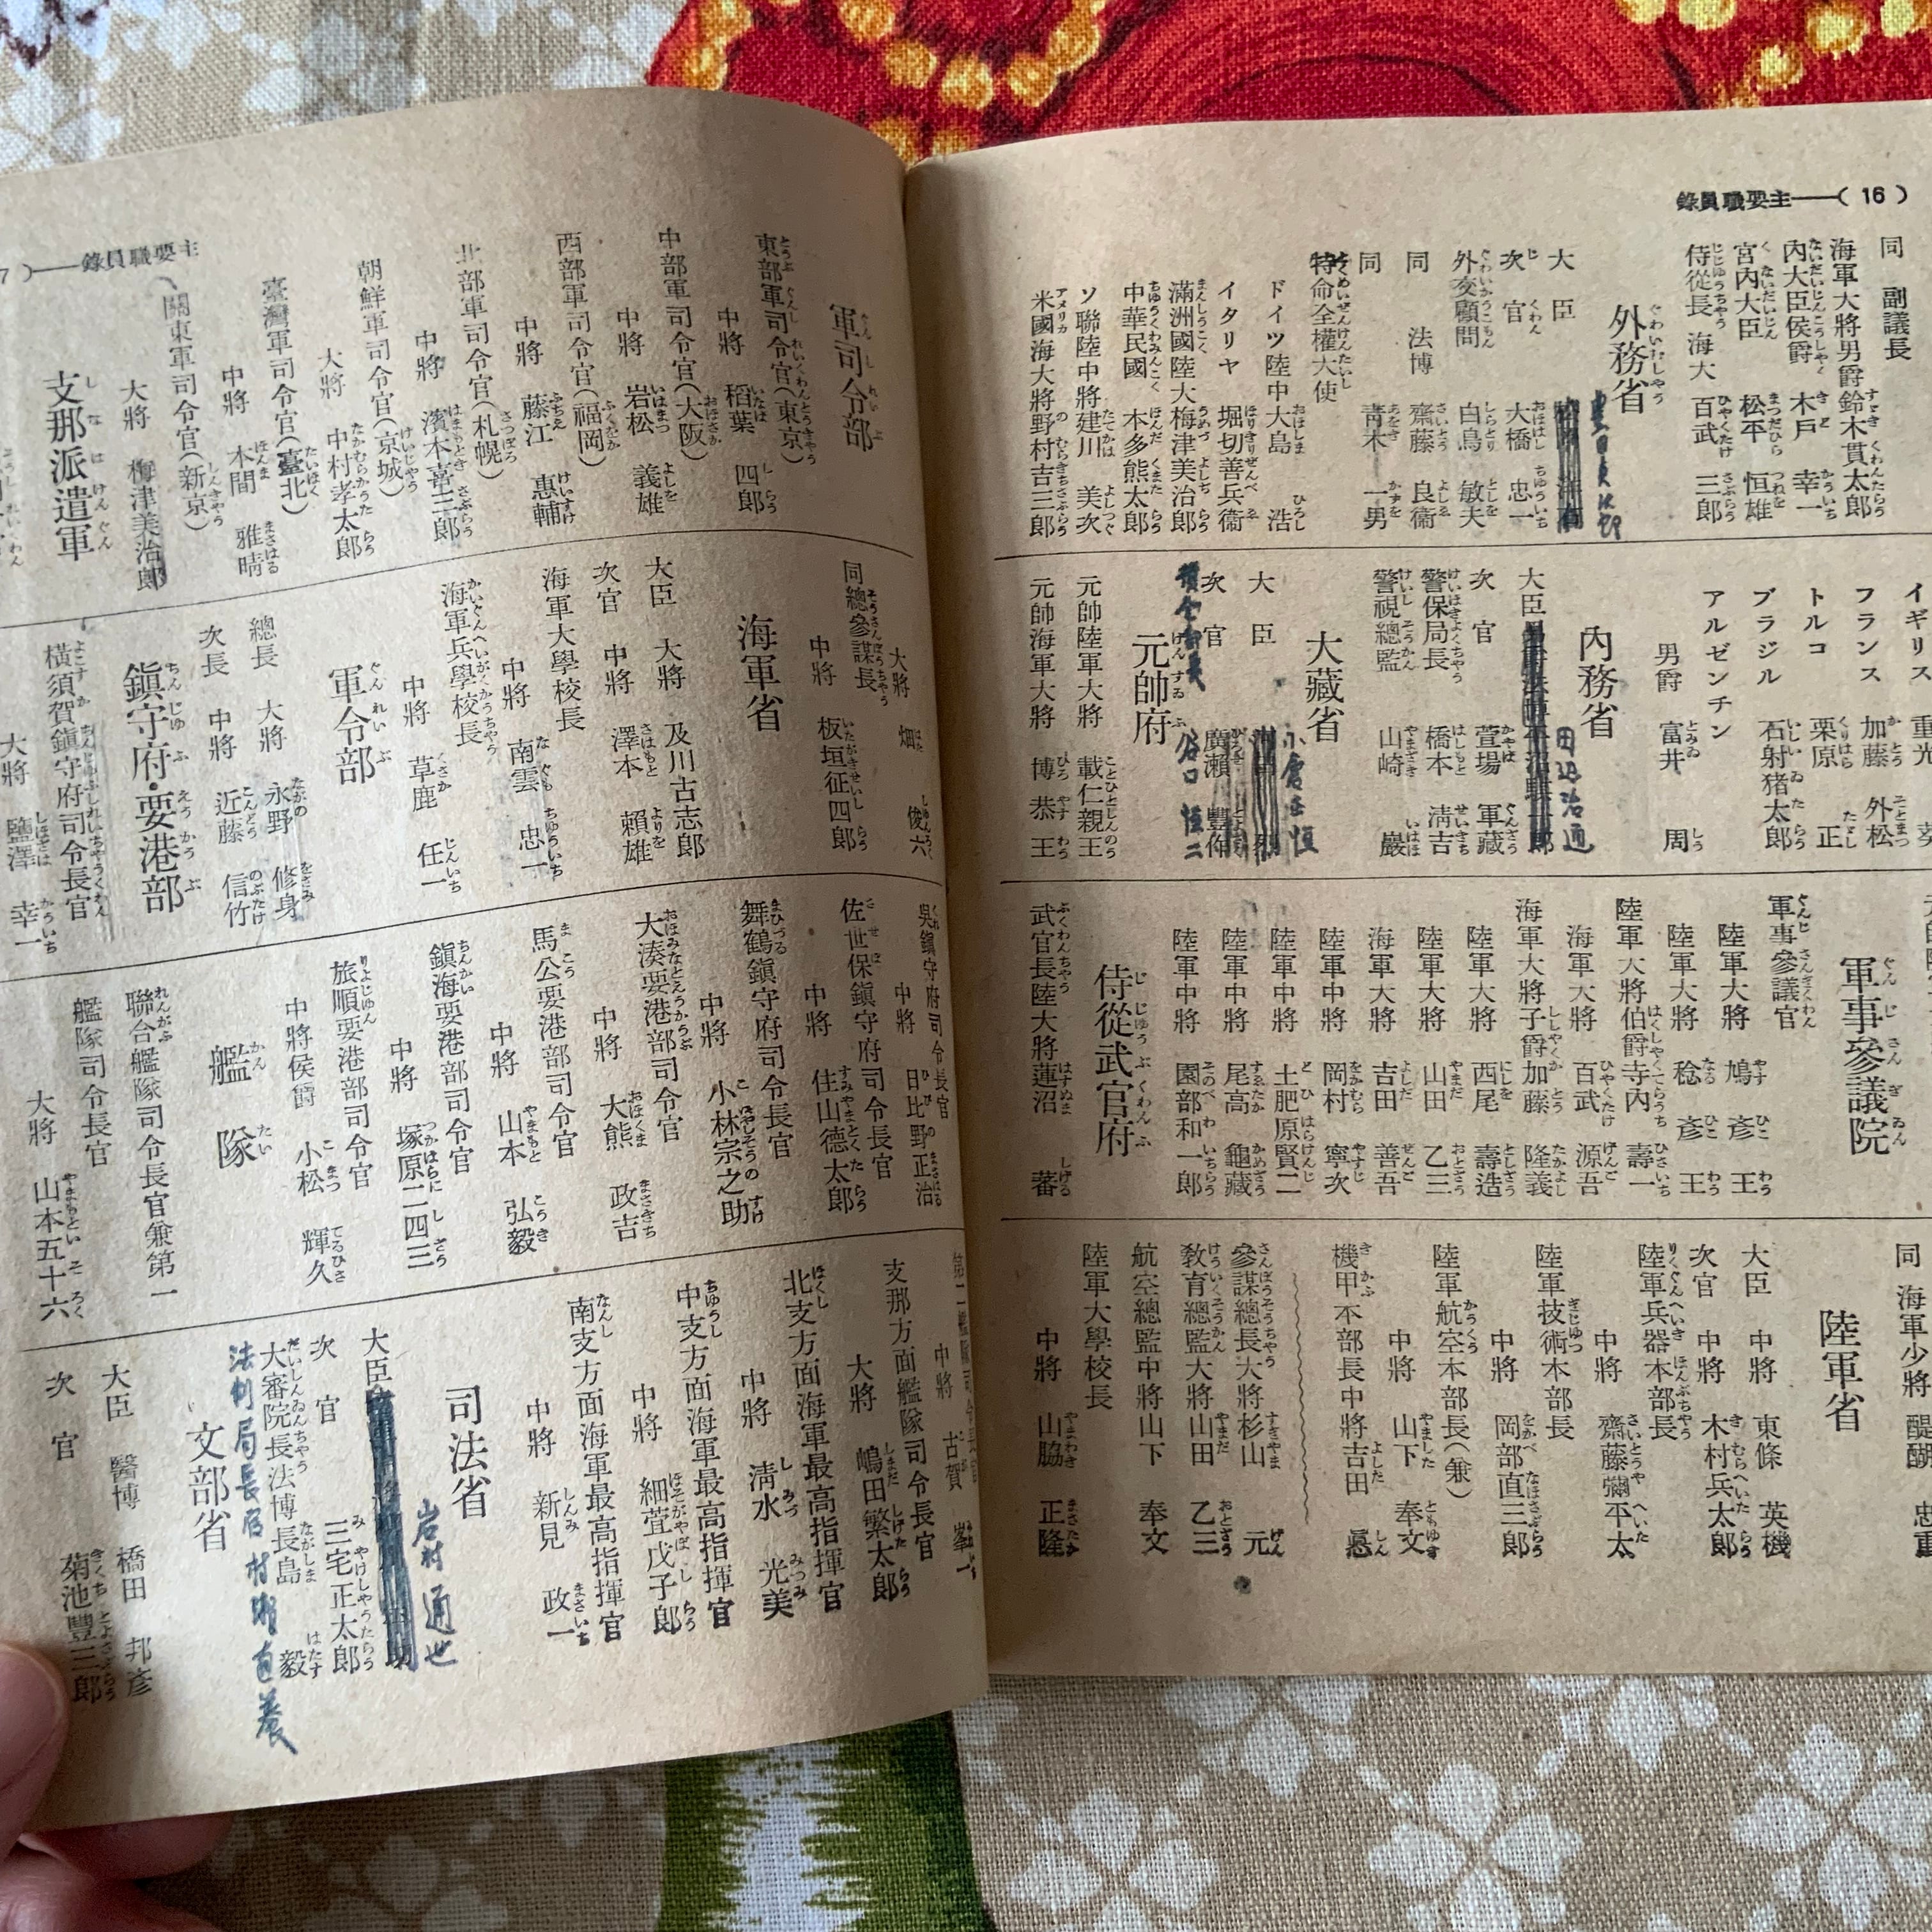 主要職員錄——( 16 )
同　副議長
海軍大將男爵 鈴木貫太郎
內大臣侯爵　木戶　幸一
宮內大臣　松平　恒雄
侍從長　海大　百武　三郎
外務省
大　臣
次　官　大橋　忠一
外交顧問　白鳥　敏夫
同　法博　齋藤　良衞
同　靑木　一男
特命全權大使
ドイツ　陸中　大島　浩
イタリヤ　堀切善兵衞
滿洲國　陸大　梅津美治郎
中華民國　本多熊太郎
ソ聯　陸中將　建川　美次
米國　海大將　野村吉三郎
イギリス　重光　葵
フランス　加藤　外松
トルコ　栗原　正
ブラジル　石射猪太郎
アルゼンチン
男爵　富井　周
內務省
田辺治通
大臣
次　官　萱場　軍藏
警保局長　橋本　淸吉
警視總監　山崎　巖
大藏省
小倉正恒
大　臣
次　官　廣瀨　豐作
谷口　恒二
元帥府
元帥陸軍大將　載仁親王
元帥海軍大將　博恭王
軍事參議院
軍事參議官
陸軍大將　鳩彥王
陸軍大將　稔彥王
陸軍大將伯爵　寺內　壽一
海軍大將　百武　源吾
海軍大將子爵　加藤　隆義
陸軍大將　西尾　壽造
陸軍大將　山田　乙三
海軍大將　吉田　善吾
陸軍中將　岡村　寧次
陸軍中將　土肥原賢二
陸軍中將　尾高　龜藏
陸軍中將　園部和一郎
侍從武官府
武官長陸大將　蓮沼　蕃
同　海軍少將　醍醐　忠重
陸軍省
大臣　中將　東條　英機
次官　中將　木村兵太郎
陸軍兵器本部長
中將　齋藤彌平太
陸軍技術本部長
中將　岡部直三郎
陸軍航空本部長(兼)
中將　山下　奉文
機甲本部長中將　吉田　悳
參謀總長大將　杉山　元
敎育總監大將　山田　乙三
航空總監中將　山下　奉文
陸軍大學校長
中將　山脇　正隆
7 )——主要職員錄
軍司令部
東部軍司令官(東京)
中將　稻葉　四郎
中部軍司令官(大阪)
中將　岩松　義雄
西部軍司令官(福岡)
中將　藤江　惠輔
北部軍司令官(札幌)
中將　濱本喜三郎
朝鮮軍司令官(京城)
大將　中村孝太郎
臺灣軍司令官(臺北)
中將　本間　雅晴
關東軍司令官(新京)
大將　梅津美治郎
支那派遣軍
大將　畑　俊六
同總參謀長
中將　板垣征四郎
海軍省
大臣　大將　及川古志郎
次官　中將　澤本　賴雄
海軍大學校長
中將　南雲　忠一
海軍兵學校長
中將　草鹿　任一
軍令部
總長　大將　永野　修身
次長　中將　近藤　信竹
鎭守府・要港部
橫須賀鎭守府司令長官
大將　鹽澤　幸一
吳鎭守府司令長官
中將　日比野正治
佐世保鎭守府司令長官
中將　住山德太郎
舞鶴鎭守府司令長官
中將　小林宗之助
大湊要港部司令官
中將　大熊　政吉
馬公要港部司令官
中將　山本　弘毅
鎭海要港部司令官
中將　塚原二四三
旅順要港部司令官
中將侯爵　小松　輝久
艦　隊
聯合艦隊司令長官兼第一
艦隊司令長官
大將　山本五十六
第二艦隊司令長官
中將　古賀　峯一
支那方面艦隊司令長官
大將　嶋田繁太郎
北支方面海軍最高指揮官
中將　淸水　光美
中支方面海軍最高指揮官
中將　細萱戊子郎
南支方面海軍最高指揮官
中將　新見　政一
司法省
岩村通世
大臣
次　官　三宅正太郎
大審院長法博　長島　毅
法制局長官 村瀨直養
文部省
大臣　醫博　橋田　邦彥
次　官　菊池豐三郎